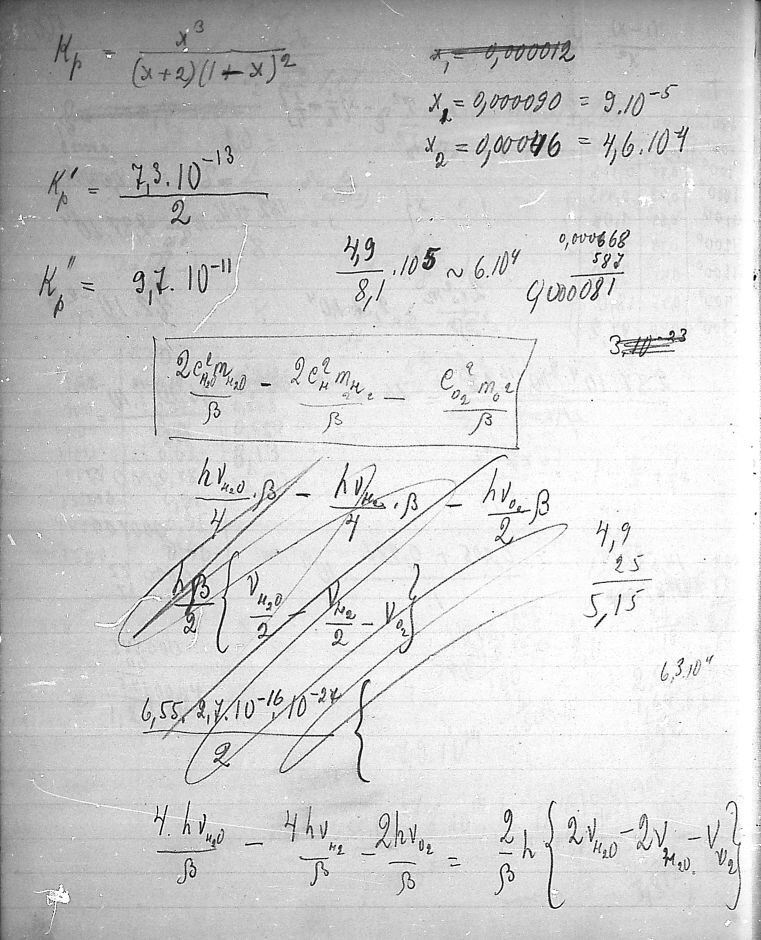 Kp = x³ / (x+2)(1-x)²
x₁ = 0,000012
x₁ = 0,000090 = 9.10⁻⁵
x₂ = 0,00046 = 4,6.10⁻⁴
Kp' = 7,3.10⁻¹³ / 2
Kp'' = 9,7.10⁻¹¹
4,9 / 8,1 .10⁵ ~ 6.10⁴
0,000668
587
0,000081
3.10⁻²³
2c²H₂O mH₂O / β - 2c²H mH₂ / β - c²O₂ mO₂ / β
hνH₂O / 4 .β - hνH₂ / 4 .β - hνO₂ / 2 β
hβ / 2 { νH₂O / 2 - νH₂ / 2 - νO₂ }
4,9
25
5,15
6,3.10⁴
6,55.2,7.10⁻¹⁶.10⁻²⁷ / 2 {
4.hνH₂O / β - 4hνH₂ / β - 2hνO₂ / β = 2 / β h { 2νH₂O - 2νH₂O - νO₂ }